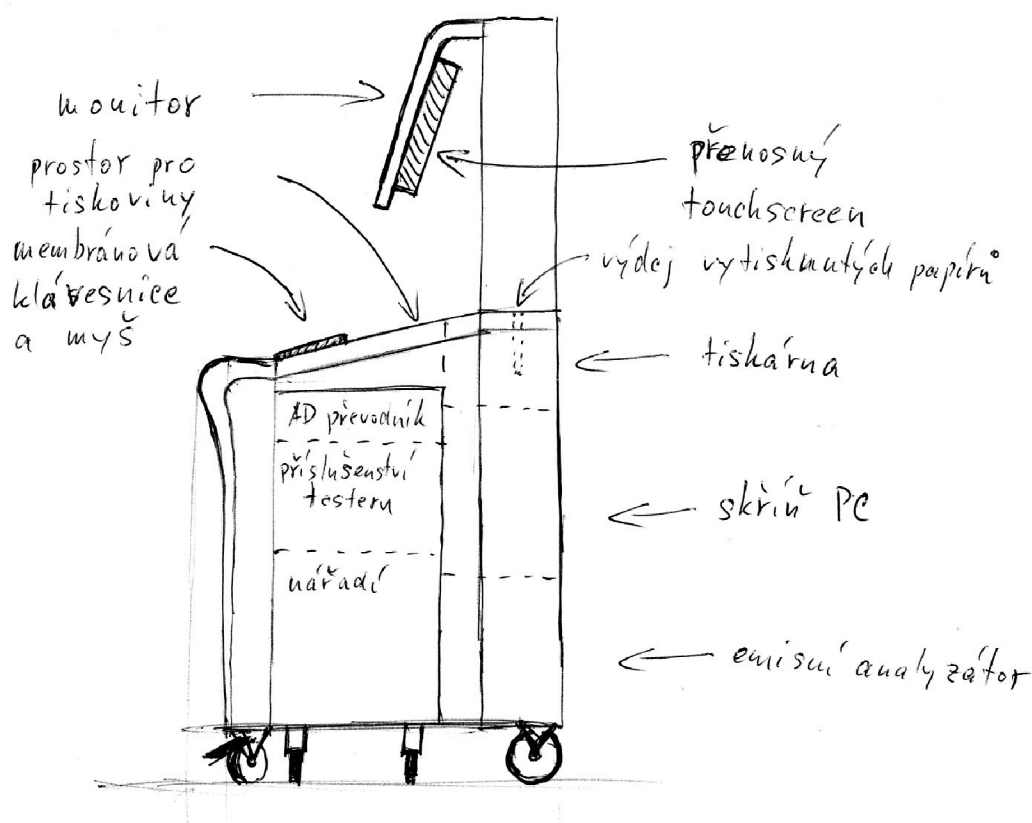 monitor
prostor pro
tiskoviny
membránová
klávesnice
a myš
přenosný
touchscreen
výdej vytisknutých papírů
tiskárna
AD převodník
příslušenství
testeru
nářadí
skříň PC
emisní analyzátor